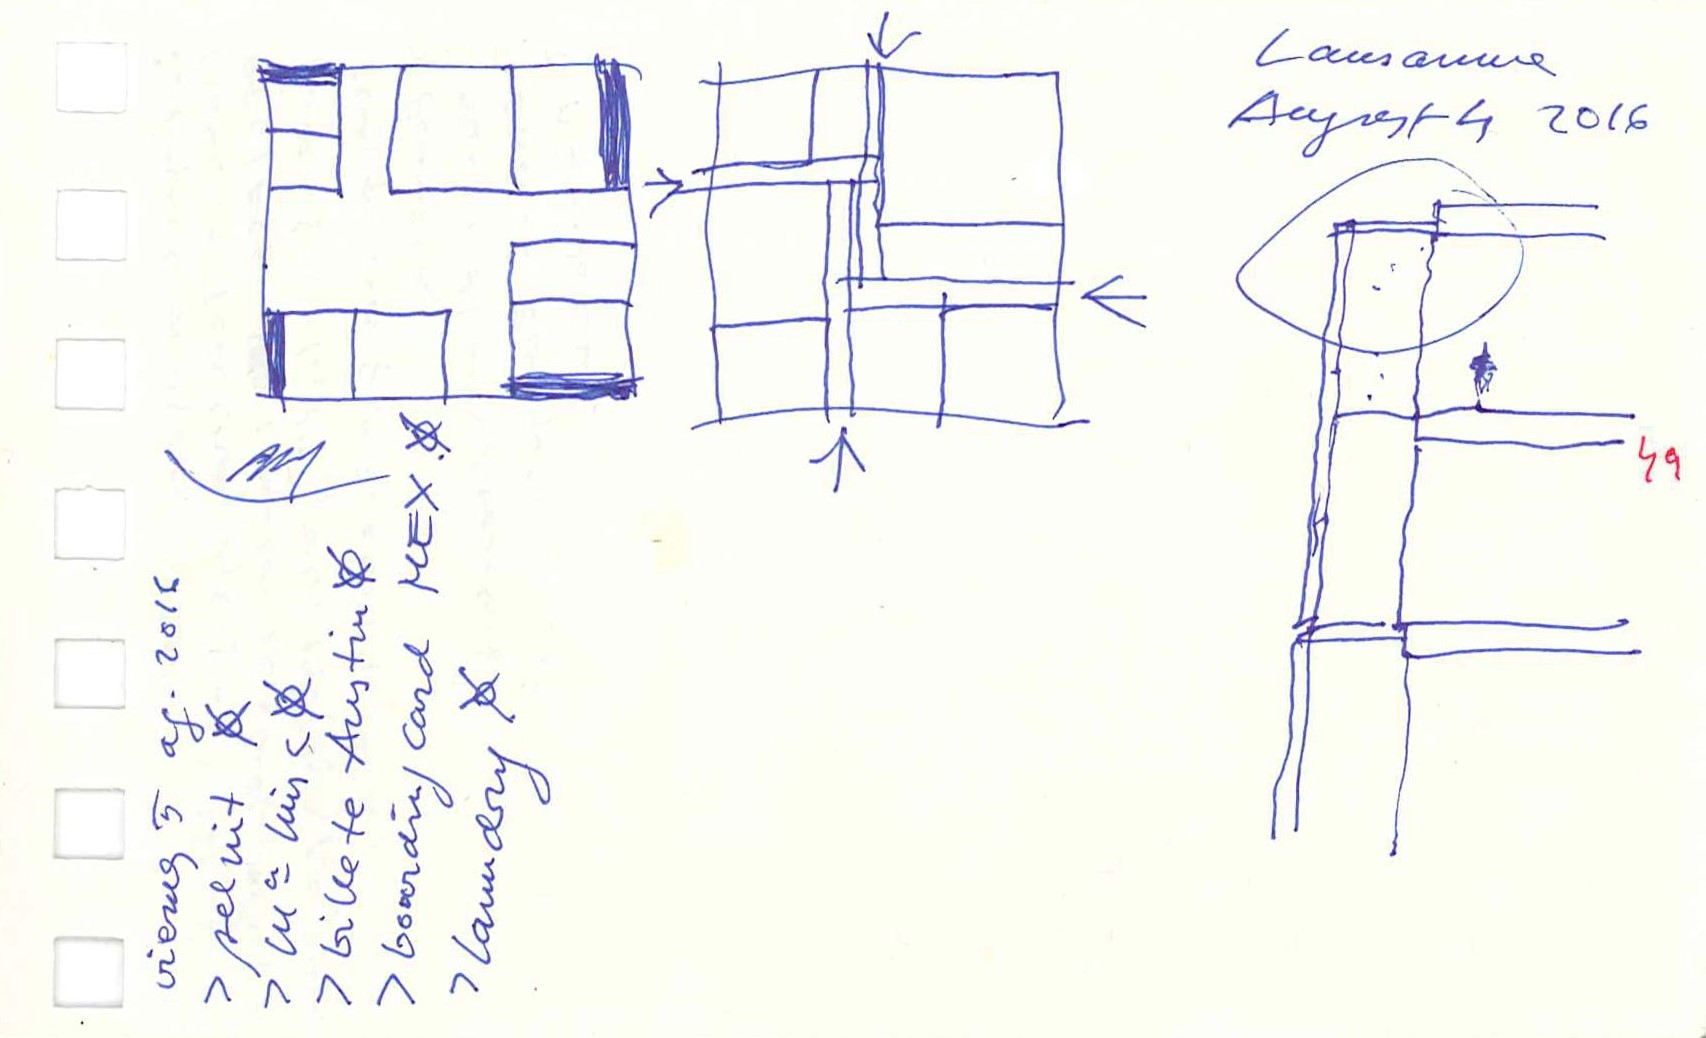 Lausanne
August 4 2016
49
viernes 5 ag. 2016
> selvit
> billete Austin
> boarding card MEX.
> laundry